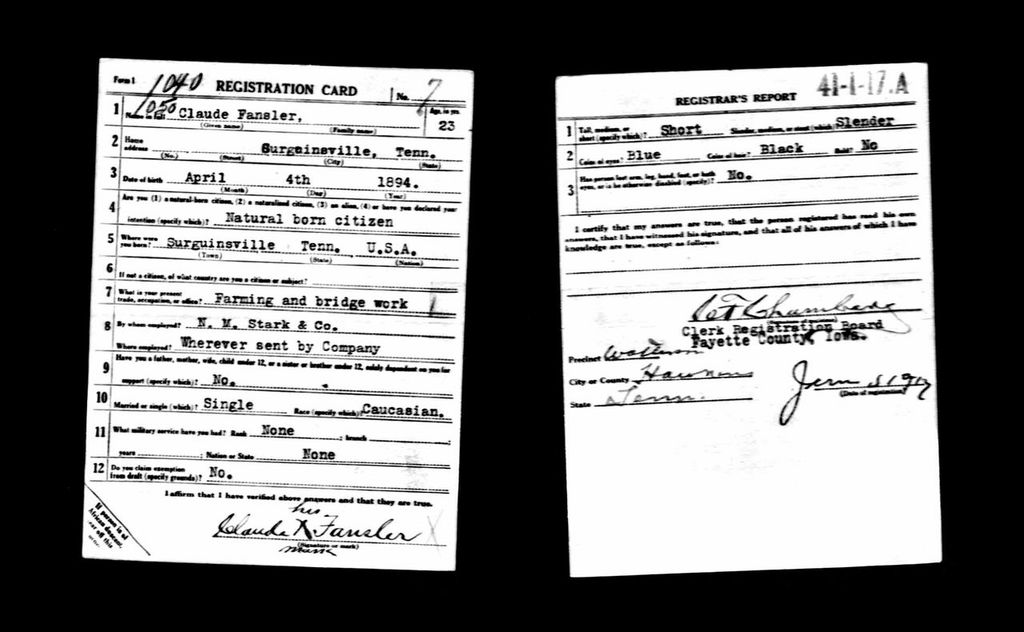 Form 1 1040 REGISTRATION CARD No. 7
1050
1 Name in full Claude Fansler, Age, in yrs. 23
(Given name) (Family name)
2 Home address Surgoinsville, Tenn.
(No.) (Street) (City) (State)
3 Date of birth April 4th 1894.
(Month) (Day) (Year)
4 Are you (1) a natural-born citizen, (2) a naturalized citizen, (3) an alien, (4) or have you declared your
intention (specify which)? Natural born citizen
5 Where were you born? Surguinsville Tenn. U.S.A.
(Town) (State) (Nation)
6 If not a citizen, of what country are you a citizen or subject?
7 What is your present trade, occupation, or office? Farming and bridge work
8 By whom employed? N. M. Stark & Co.
Where employed? Wherever sent by Company
9 Have you a father, mother, wife, child under 12, or a sister or brother under 12, solely dependent on you for
support (specify which)? No.
10 Married or single (which)? Single Race (specify which)? Caucasian.
11 What military service have you had? Rank None ; branch ;
years ; Nation or State None
12 Do you claim exemption from draft (specify grounds)? No.
I affirm that I have verified above answers and that they are true.
his
Claude X Fansler
(Signature or mark)
mark
If person is of
African descent,
off this
REGISTRAR'S REPORT 41-1-17.A
1 Tall, medium, or short (specify which)? Short Slender, medium, or stout (which)? Slender
2 Color of eyes? Blue Color of hair? Black Bald? No
3 Has person lost arm, leg, hand, foot, or both eyes, or is he otherwise disabled (specify)? No.
I certify that my answers are true, that the person registered has read his own
answers, that I have witnessed his signature, and that all of his answers of which I have
knowledge are true, except as follows:
Chambers
Clerk Registration Board
Fayette County, Iowa.
Precinct
City or County Hawkins
State Tenn.
Jun 1917
(Date of registration)